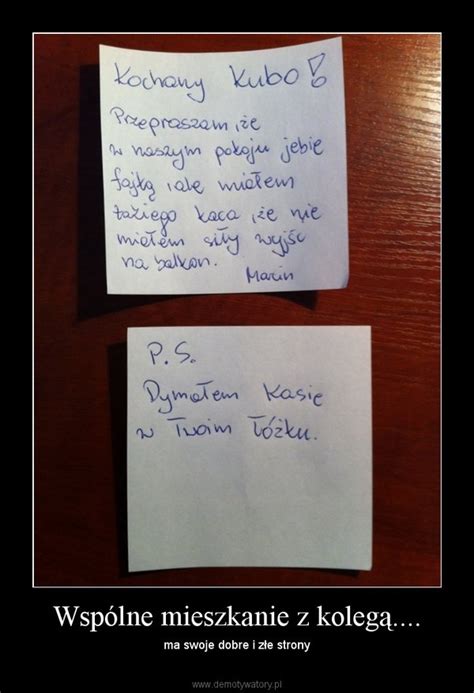 Kochany Kubo!
Przepraszam, że
w naszym pokoju jebie
fajką, ale miałem
takiego kaca, że nie
miałem siły wyjść
na balkon.
Marcin
P.S.
Dymałem Kasię
w Twoim łóżku.
Wspólne mieszkanie z kolegą....
ma swoje dobre i złe strony
www.demotywatory.pl